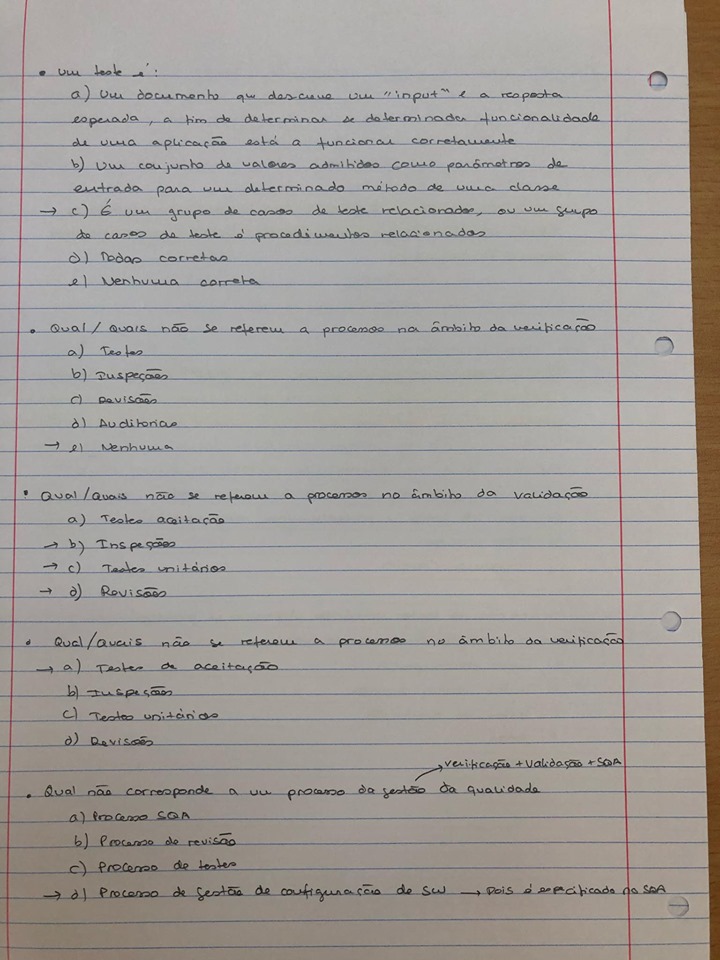 • Um teste é:
a) Um documento que descreve um "input" e a resposta
esperada, a fim de determinar se determinada funcionalidade
de uma aplicação está a funcionar corretamente
b) Um conjunto de valores admitidos como parâmetros de
entrada para um determinado método de uma classe
→ c) É um grupo de casos de teste relacionados, ou um grupo
de casos de teste e procedimentos relacionados
d) Todas corretas
e) Nenhuma correta
• Qual / Quais não se referem a processos na âmbito da verificação
a) Testes
b) Inspeções
c) Revisões
d) Auditorias
→ e) Nenhuma
• Qual/Quais não se referem a processos no âmbito da validação
a) Testes aceitação
→ b) Inspeções
→ c) Testes unitários
→ d) Revisões
• Qual/Quais não se referem a processos no âmbito da verificação
→ a) Testes de aceitação
b) Inspeções
c) Testes unitários
d) Revisões
→ verificação + validação + SQA
• Qual não corresponde a um processo da gestão da qualidade
a) Processo SQA
b) Processo de revisão
c) Processo de testes
→ d) Processo de gestão de configuração de SW → Pois é especificado no SQA